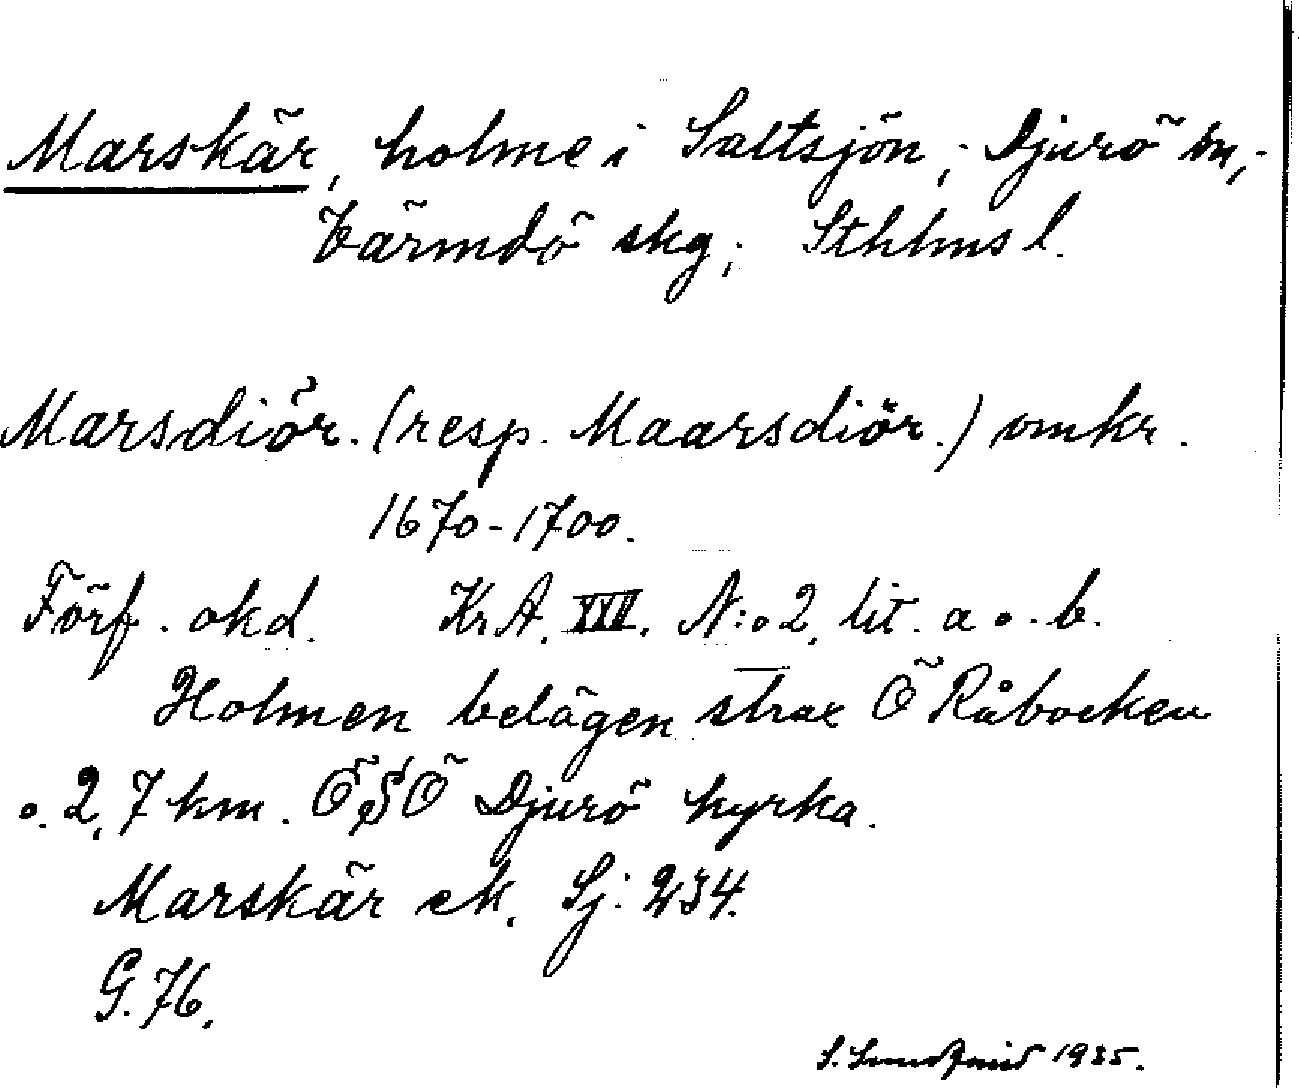 Marskär, holme i Saltsjön; Djurö sn,
Värmdö skg; Sthlms l.
Marsdiör. (resp. Maarsdiör.) omkr.
1670-1700.
Förf. okd. Kr.A. XXII. N:o 2, lit. a o. b.
Holmen belägen strax Ö Råbocken
o. 2,7 km. ÖSÖ Djurö kyrka.
Marskär ek. Sj: 234.
G. 76.
S. 1935.